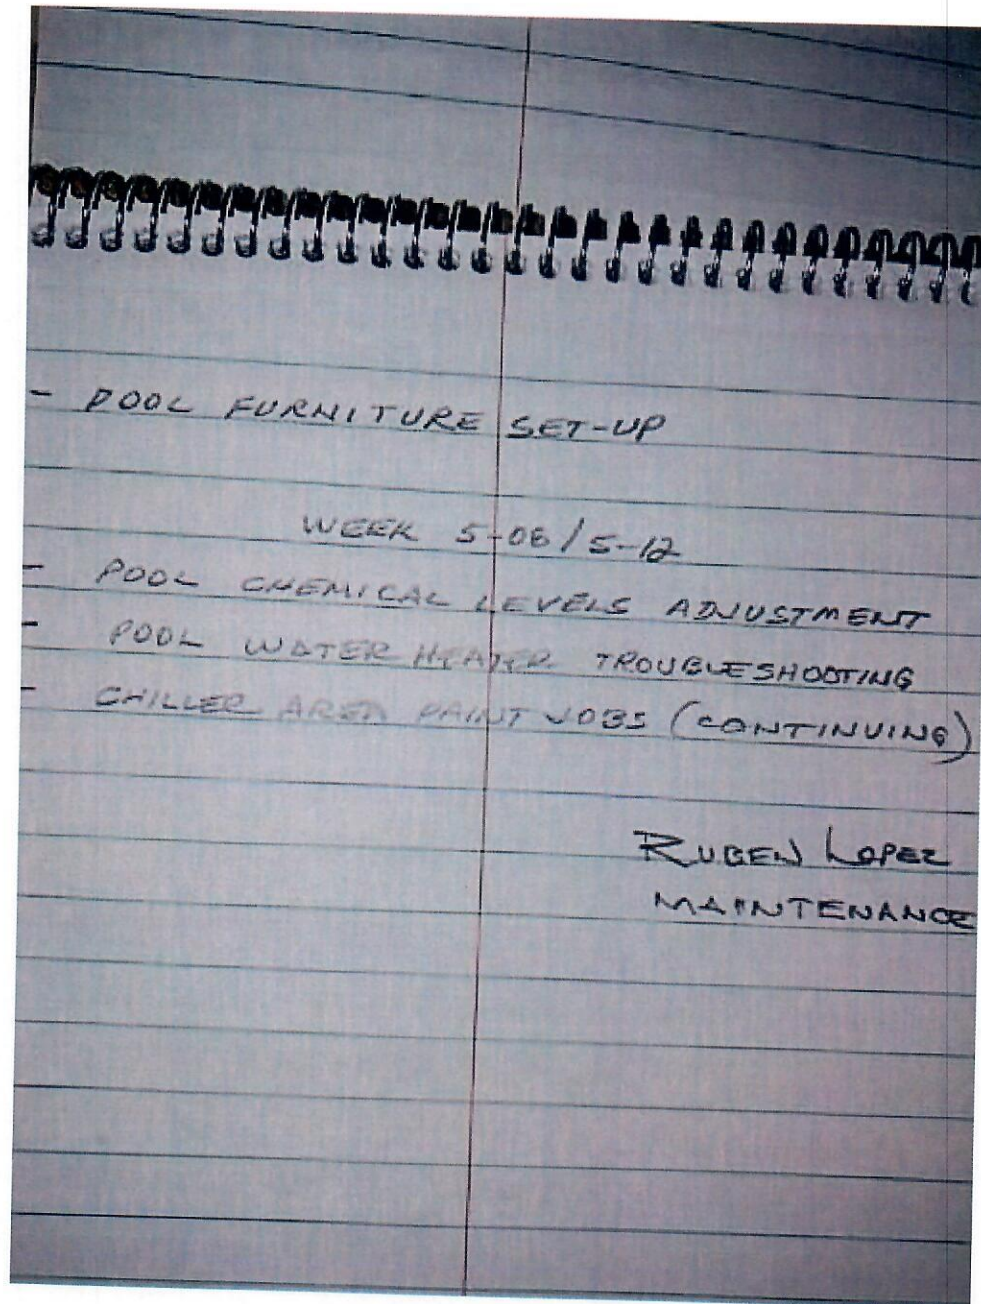 - POOL FURNITURE SET-UP
WEEK 5-08/5-12
- POOL CHEMICAL LEVELS ADJUSTMENT
- POOL WATER HEATER TROUBLESHOOTING
- CHILLER AREA PAINT JOBS (CONTINUING)
RUBEN LOPEZ
MAINTENANCE